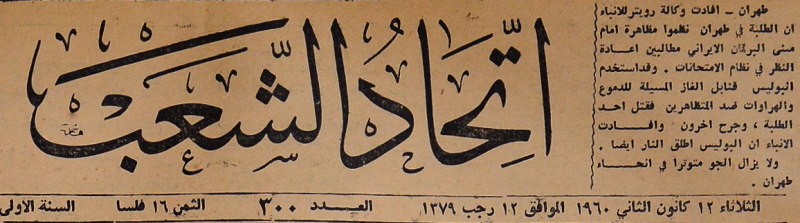 طهران ـ افادت وكالة رويتر للانباء
ان الطلبة في طهران نظموا مظاهرة امام
مبنى البرلمان الايراني مطالبين اعادة
النظر في نظام الامتحانات . وقد استخدم
البوليس قنابل الغاز المسيلة للدموع
والهراوات ضد المتظاهرين فقتل احد
الطلبة ، وجرح آخرون . وافادت
الانباء ان البوليس اطلق النار ايضا .
ولا يزال الجو متوترا في انحاء
طهران .
اتِّحَادُ الشَّعب
الثلاثاء ١٢ كانون الثاني ١٩٦٠ الموافق ١٢ رجب ١٣٧٩ العدد ٣٠٠ الثمن ١٦ فلسا السنة الاولى